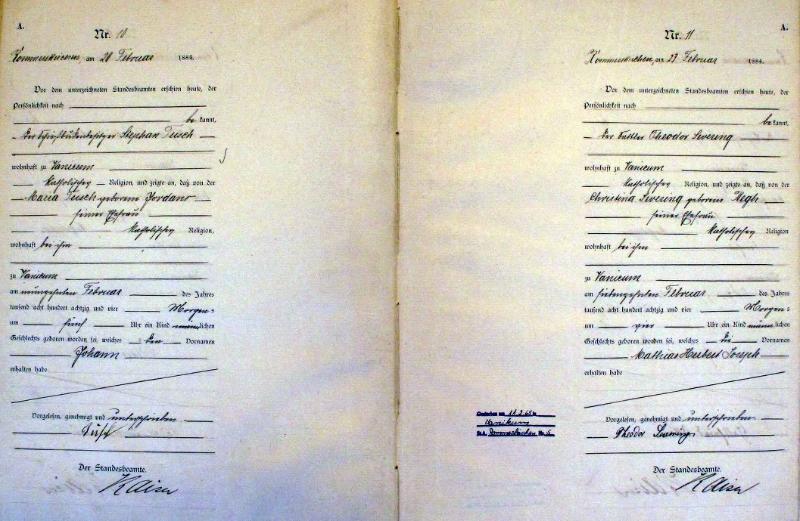 A.
Nr. 10
am 20 Februar 1884.
Vor dem unterzeichneten Standesbeamten erschien heute, der
Persönlichkeit nach
be kannt,
der Stephan
wohnhaft zu Vanicum
katholischer Religion, und zeigte an, daß von der
Maria geborenen Jordans
seiner Ehefrau
katholischer Religion,
wohnhaft bei ihm
zu Vanicum
am neunzehnten Februar des Jahres
tausend acht hundert achtzig und vier Morgens
um fünf Uhr ein Kind männlichen
Geschlechts geboren worden sei, welches den Vornamen
Johann
erhalten habe
Vorgelesen, genehmigt und unterschrieben
Der Standesbeamte.
Kaiser
A.
Nr. 11
am Februar 1884.
Vor dem unterzeichneten Standesbeamten erschien heute, der
Persönlichkeit nach
be kannt,
der Theodor Severing
wohnhaft zu Vanicum
katholischer Religion, und zeigte an, daß von der
Christina Severing geborenen
seiner Ehefrau
katholischer Religion,
wohnhaft bei ihm
zu Vanicum
am siebenzehnten Februar des Jahres
tausend acht hundert achtzig und vier Morgens
um vier Uhr ein Kind männlichen
Geschlechts geboren worden sei, welches die Vornamen
Mathias Herbert Joseph
erhalten habe
Vorgelesen, genehmigt und unterschrieben
Theodor Severing
Der Standesbeamte.
Kaiser